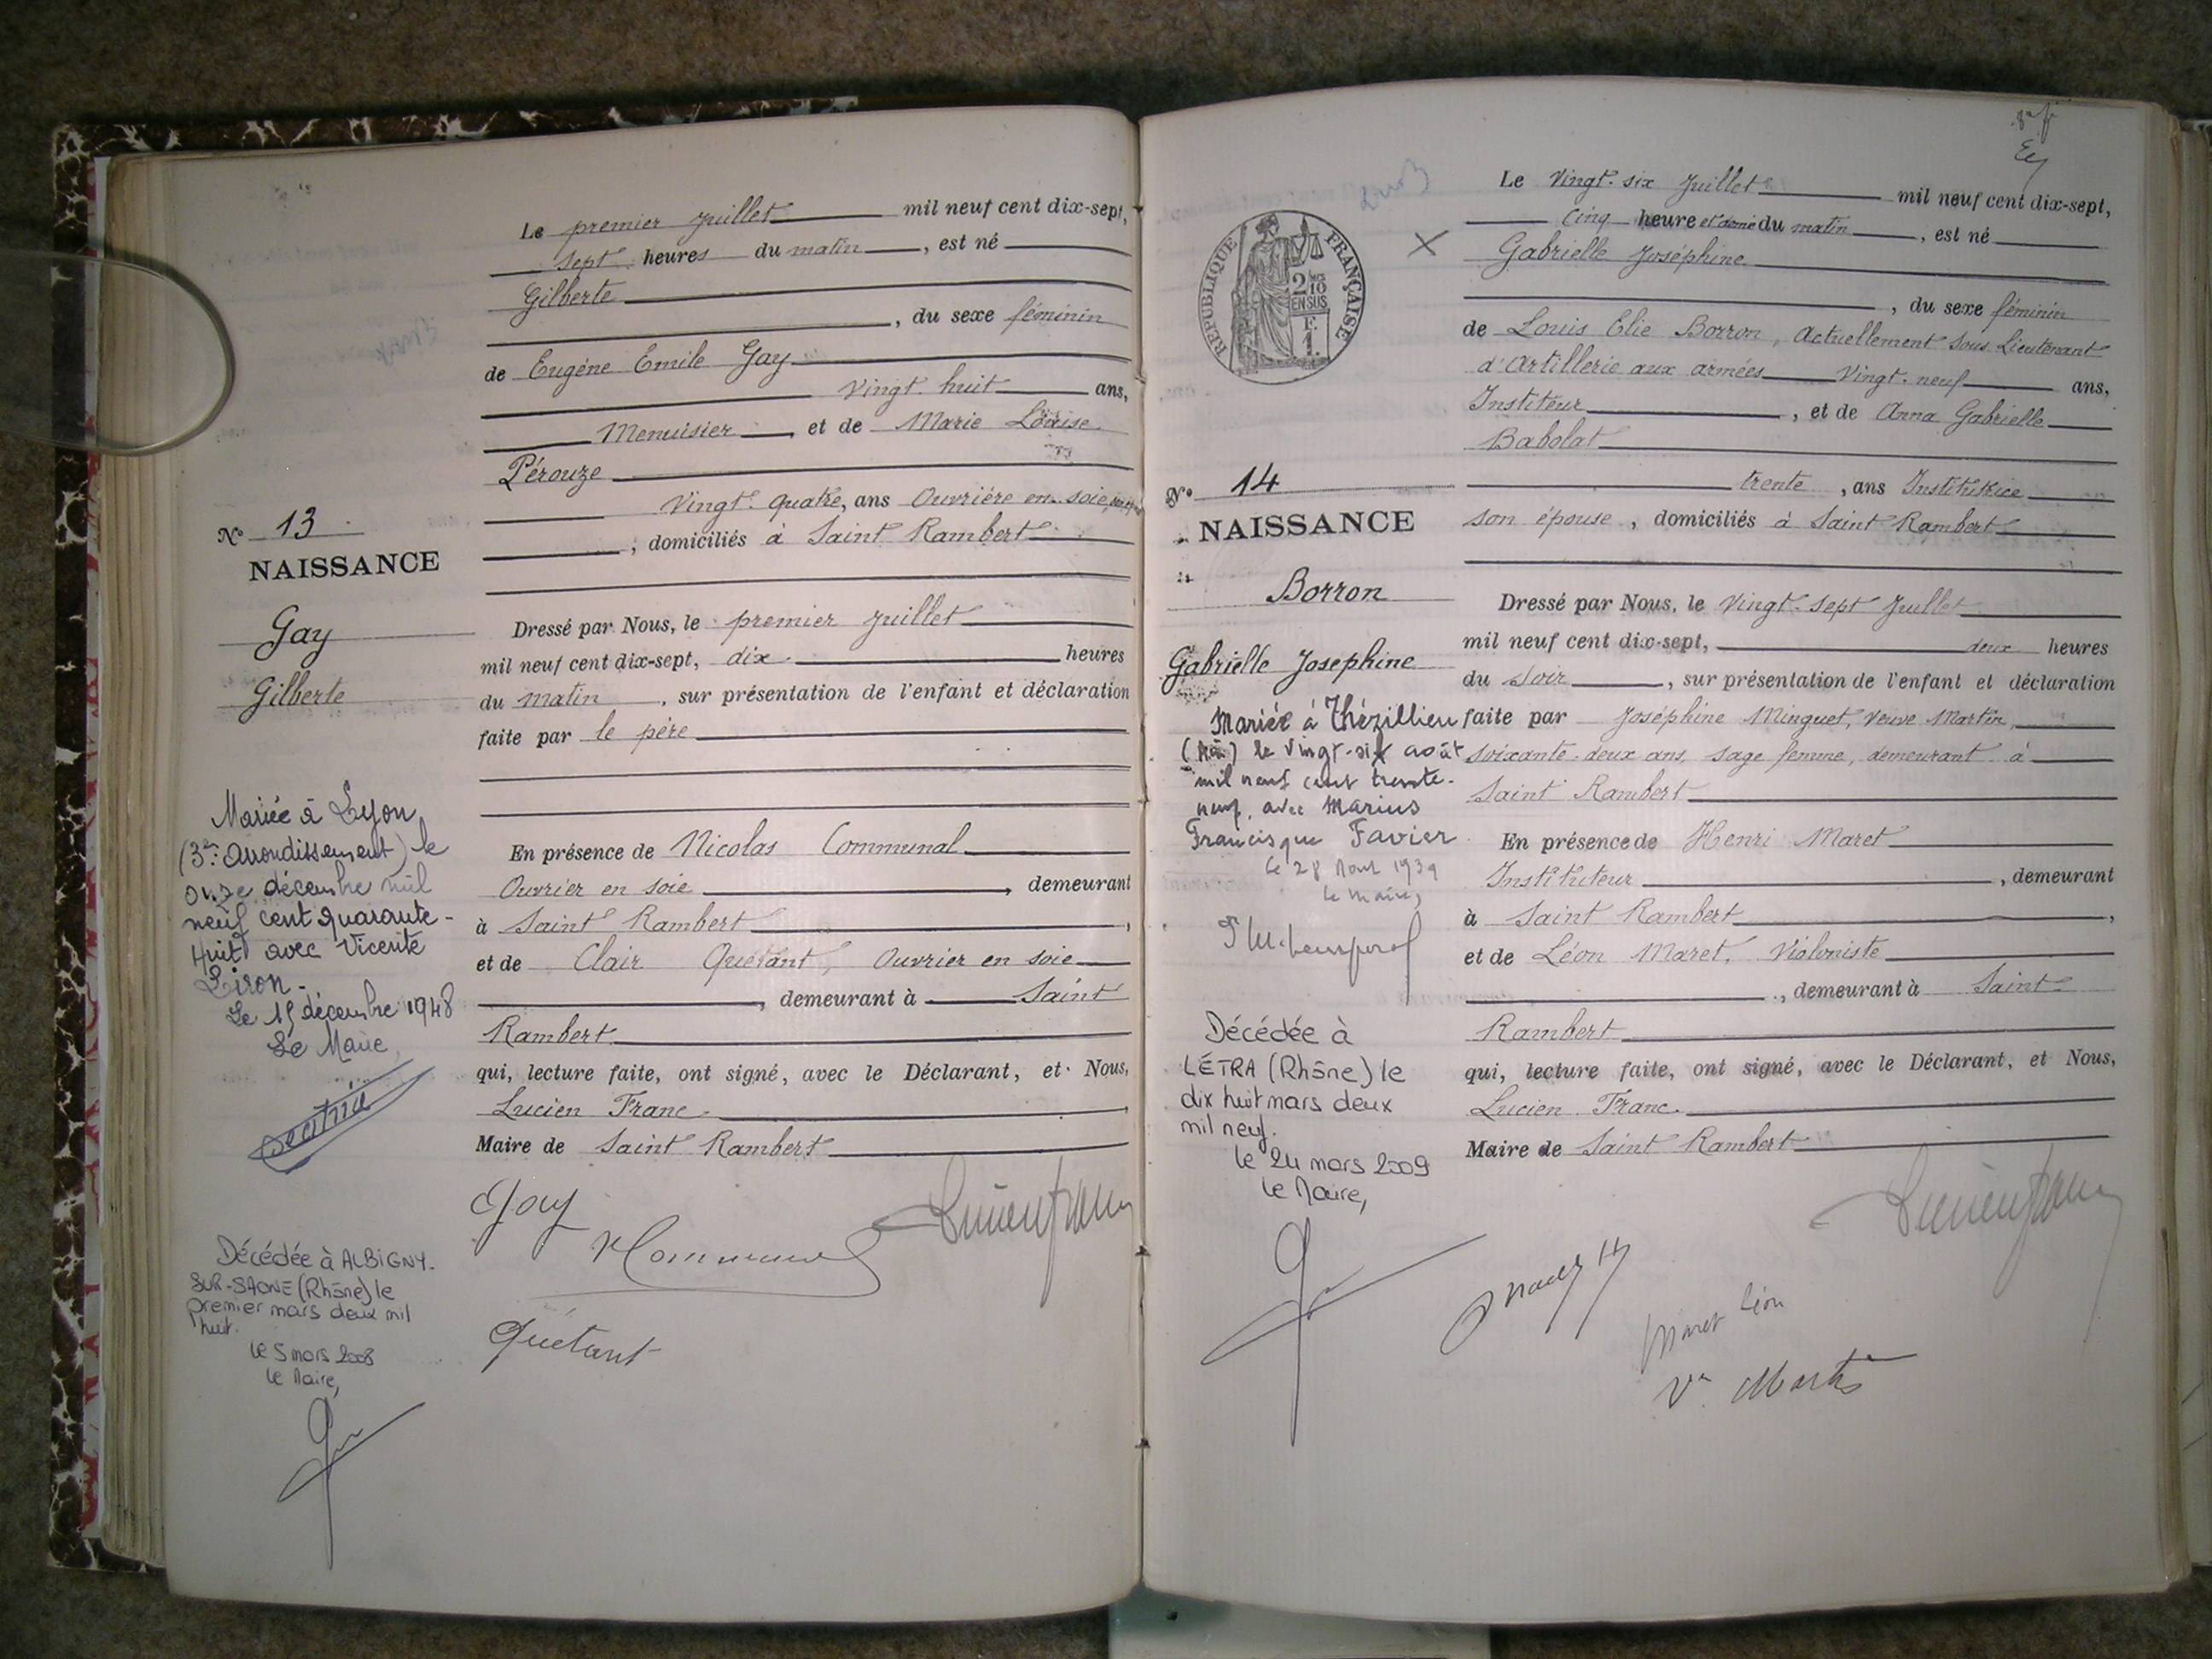 Le premier Juillet mil neuf cent dix-sept,
sept heures du matin, est né
Gilberte
, du sexe féminin
de Eugéne Emile Gay
Vingt huit ans,
Menuisier, et de Marie Louise
Pérouze
Vingt-quatre, ans Ouvriére en soie,
, domiciliés à Saint Rambert
N° 13
NAISSANCE
Gay
Gilberte
Dressé par Nous, le premier Juillet
mil neuf cent dix-sept, dix heures
du matin, sur présentation de l'enfant et déclaration
faite par le père
En présence de Nicolas Communal
Ouvrier en soie, demeurant
à Saint Rambert,
et de Clair Quétant, Ouvrier en soie
, demeurant à Saint
Rambert
qui, lecture faite, ont signé, avec le Déclarant, et Nous,
Lucien Franc.
Maire de Saint Rambert
Mariée à Lyon
(3e arrondissement) le
onze décembre mil
neuf cent quarante-
Huit avec Vicente
Liron.
Le 15 décembre 1948
Le Maire,
Décédée à ALBIGNY-
SUR-SAONE (Rhône) le
premier mars deux mil
huit.
le 5 mars 2008
le Maire,
Gay
Communal
Lucien Franc
Quétant
Le Vingt-six Juillet mil neuf cent dix-sept,
Cinq heure et demie du matin, est né
Gabrielle Joséphine
, du sexe féminin
de Louis Elie Borron, Actuellement Sous Lieutenant
d'Artillerie aux armées Vingt-neuf ans,
Instituteur, et de Anna Gabrielle
Babolat
trente, ans Institutrice
son épouse, domiciliés à Saint Rambert
REPUBLIQUE FRANÇAISE
2/10
EN SUS
F.
1.
N° 14
NAISSANCE
Borron
Gabrielle Josephine
Dressé par Nous, le Vingt-sept Juillet
mil neuf cent dix-sept, deux heures
du soir, sur présentation de l'enfant et déclaration
faite par Joséphine Minguet, Veuve Martin,
soixante-deux ans, sage femme, demeurant à
Saint Rambert
En présence de Henri Maret
Instituteur, demeurant
à Saint Rambert,
et de Léon Maret, Violoniste
, demeurant à Saint
Rambert
qui, lecture faite, ont signé, avec le Déclarant, et Nous,
Lucien Franc.
Maire de Saint Rambert
Mariée à Thézillieu
(Ain) le vingt-six août
mil neuf cent trente-
neuf, avec Marius
Francisque Favier
le 28 Aout 1939
le maire,
Décédée à
LÉTRA (Rhône) le
dix huit mars deux
mil neuf.
le 24 mars 2009
le Maire,
Lucien Franc
Maret Léon
Ve Martin